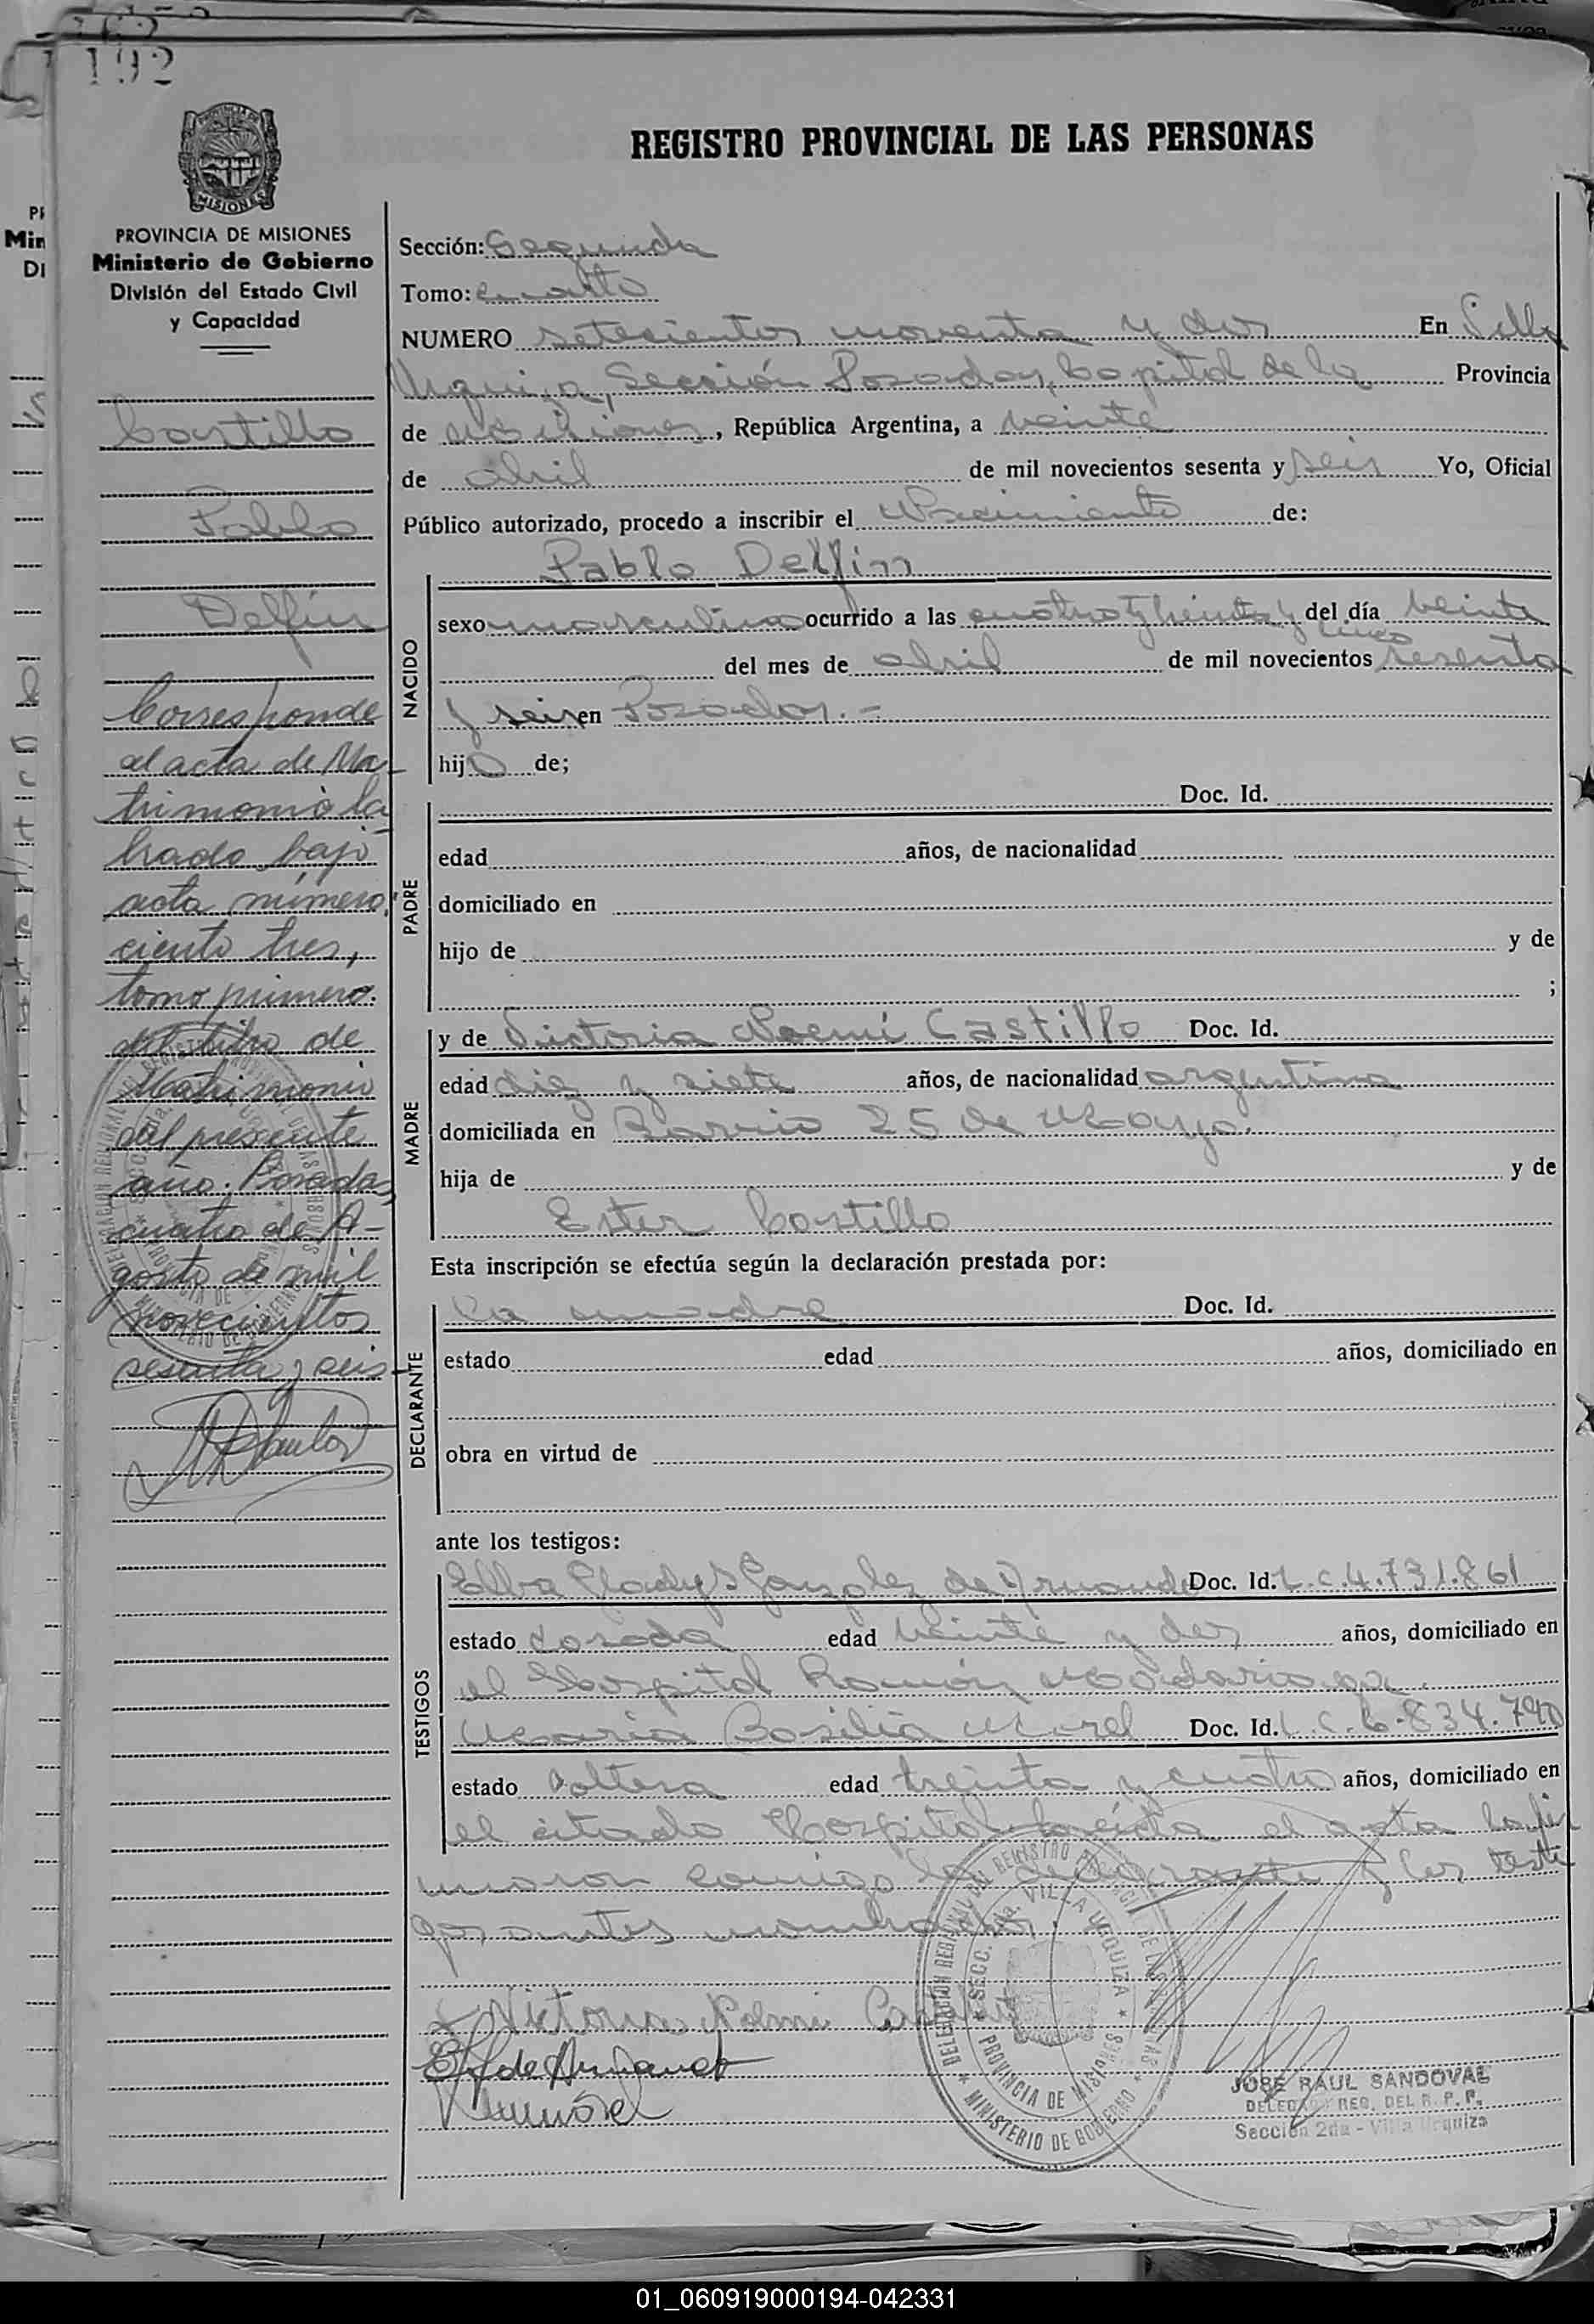 192
REGISTRO PROVINCIAL DE LAS PERSONAS
PROVINCIA DE MISIONES
Ministerio de Gobierno
División del Estado Civil
y Capacidad
Castillo
Pablo
Delfin
Corresponde
al acta de Ma
trimonio la
brado bajo
acta número,
ciento tres,
tomo primero.
del libro de
Matrimonio
del presente
año. Posadas,
cuatro de A-
gosto de mil
novecientos
sesenta y seis
Sección: Segunda
Tomo: cuarto
NUMERO setecientos noventa y dos En Villa
Urquiza, Sección Posadas, Capital de la Provincia
de Misiones, República Argentina, a veinte
de abril de mil novecientos sesenta y seis Yo, Oficial
Público autorizado, procedo a inscribir el Nacimiento de:
NACIDO
Pablo Delfin
sexo masculino ocurrido a las cuatro y treinta y cinco del día veinte
del mes de abril de mil novecientos sesenta
y seis en Posadas.-
hijo de;
PADRE
Doc. Id.
edad años, de nacionalidad
domiciliado en
hijo de y de
;
MADRE
y de Victoria Noemi Castillo Doc. Id.
edad diez y siete años, de nacionalidad argentina
domiciliada en Barrio 25 de Mayo.
hija de y de
Ester Castillo
Esta inscripción se efectúa según la declaración prestada por:
DECLARANTE
La madre Doc. Id.
estado edad años, domiciliado en
obra en virtud de
ante los testigos:
TESTIGOS
Elba Gladys Gonzalez de Doc. Id. L.C.4.731.861
estado casada edad veinte y dos años, domiciliado en
el Hospital Ramón Madariaga.
Maria Basilia Morel Doc. Id. L.C.6.834.790
estado soltera edad treinta y cuatro años, domiciliado en
el citado Hospital. Leída el acta la fir
maron conmigo la declarante y los testi
gos antes nombrados.
Victoria Noemi Castillo
DELEGACION REGIONAL DEL REGISTRO PROVINCIAL DE LAS PERSONAS
SECC. 2da. VILLA URQUIZA
PROVINCIA DE MISIONES
MINISTERIO DE GOBIERNO
JOSE RAUL SANDOVAL
DELEGADO REG. DEL R. P. P.
Sección 2da - Villa Urquiza
01_060919000194-042331